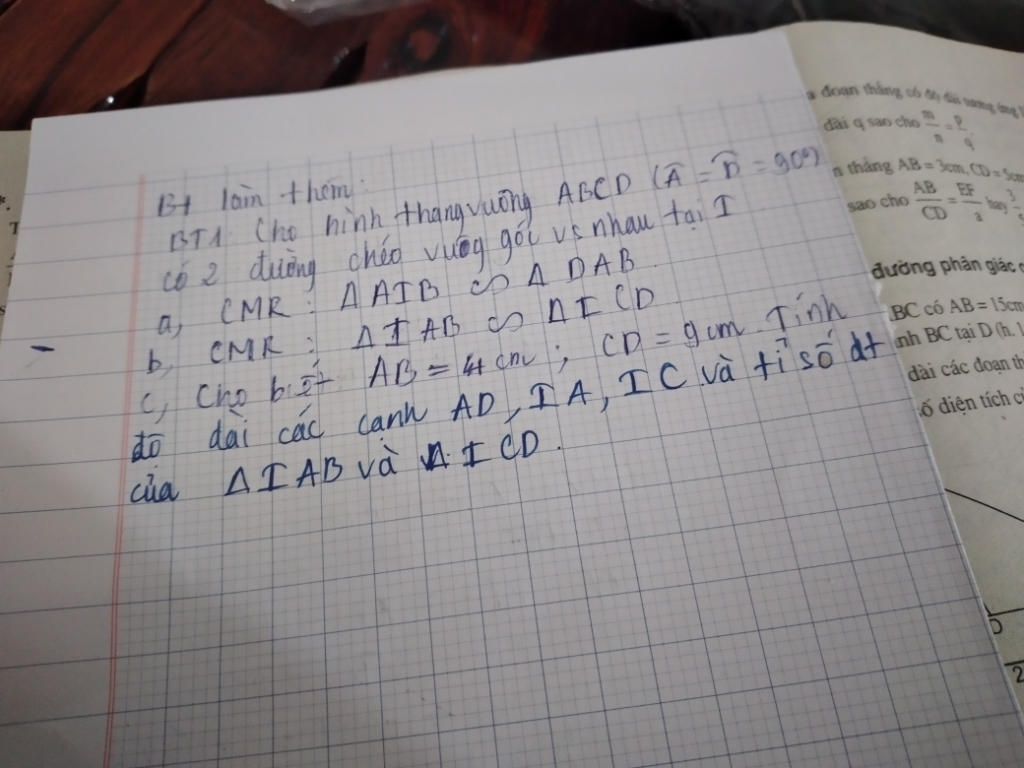 Bt làm thêm:
BT1 Cho hình thang vuông ABCD (Â = D̂ = 90°)
có 2 đường chéo vuôg góc vs nhau tại I
a, CMR: Δ AIB ∽ Δ DAB
b, CMR: Δ IAB ∽ Δ ICD
c, Cho biết AB = 4 cm; CD = 9 cm. Tính
độ dài các cạnh AD, IA, IC và tỉ số dt
của Δ IAB và Δ ICD.
đoạn thẳng có độ dài tương ứng
dài q sao cho m/n = p/q
n thẳng AB = 3cm, CD = 5cm
sao cho AB/CD = EF/a hay 3
đường phân giác
BC có AB = 15cm
nh BC tại D (h.
dài các đoạn th
ố diện tích c
D
2